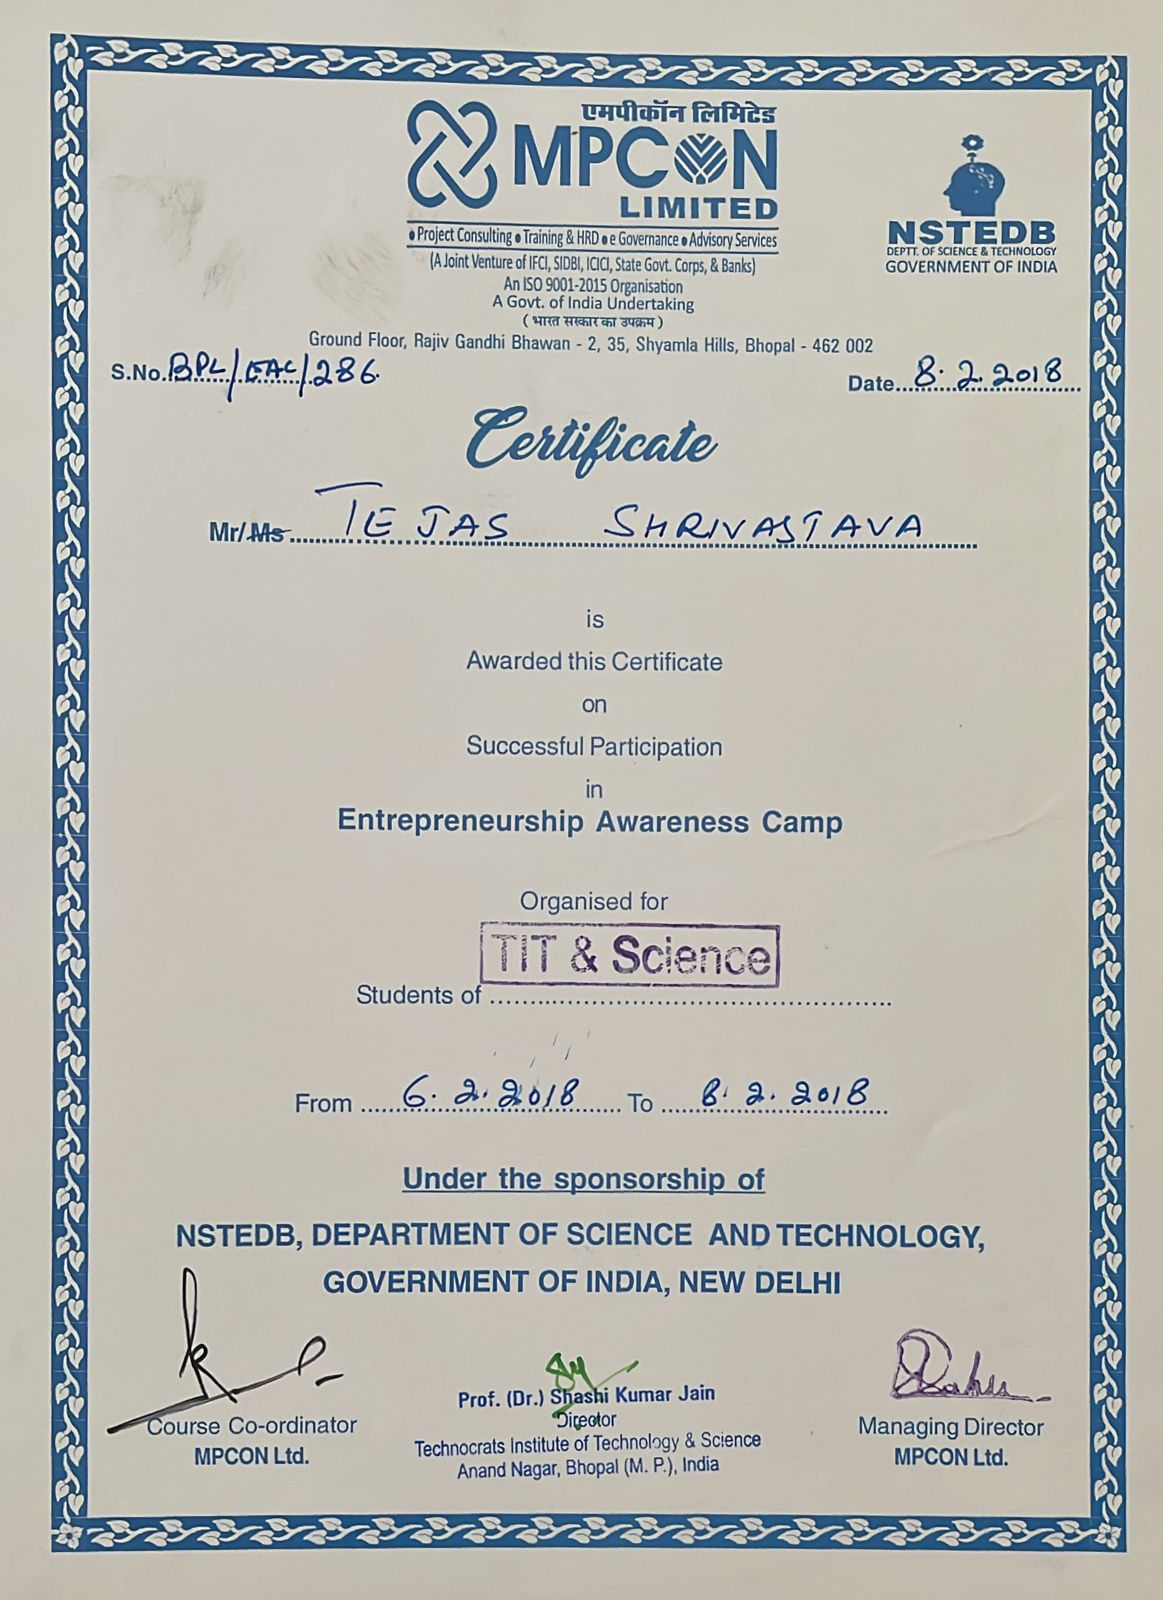 एमपीकॉन लिमिटेड
MPCON
LIMITED
• Project Consulting • Training & HRD • e Governance • Advisory Services
(A Joint Venture of IFCI, SIDBI, ICICI, State Govt. Corps, & Banks)
An ISO 9001-2015 Organisation
A Govt. of India Undertaking
( भारत सरकार का उपक्रम )
Ground Floor, Rajiv Gandhi Bhawan - 2, 35, Shyamla Hills, Bhopal - 462 002
NSTEDB
DEPTT. OF SCIENCE & TECHNOLOGY
GOVERNMENT OF INDIA
S.No. BPL/EAC/286
Date 8.2.2018
Certificate
Mr/Ms TEJAS SHRIVASTAVA
is
Awarded this Certificate
on
Successful Participation
in
Entrepreneurship Awareness Camp
Organised for
TIT & Science
Students of
From 6.2.2018 To 8.2.2018
Under the sponsorship of
NSTEDB, DEPARTMENT OF SCIENCE AND TECHNOLOGY,
GOVERNMENT OF INDIA, NEW DELHI
Course Co-ordinator
MPCON Ltd.
Prof. (Dr.) Shashi Kumar Jain
Director
Technocrats Institute of Technology & Science
Anand Nagar, Bhopal (M. P.), India
Managing Director
MPCON Ltd.